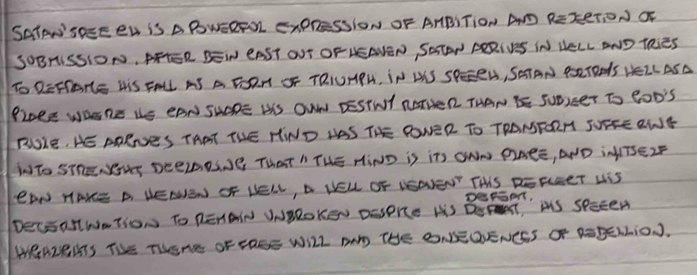 SATAN'SPEE EH IS A POWERFUL EXPRESSION OF AMBITION AND REJETION OF
SUBMISSION. AFTER BEIN CAST OUT OF HEAVEN, SATAN ARRIVES IN HELL AND TRIES
TO REFRAME HIS FALL AS A FORM OF TRIUMPH. IN HIS SPEECH, SATAN PORTRAYS HELL AS A
PLACE WHERE HE CAN SHAPE HIS OWN DESTINY RATHER THAN BE SUBJECT TO GOD'S
RULE. HE ARGUES THAT THE MIND HAS THE POWER TO TRANSFORM SUFFERING
INTO STRENGHT, DECLARING THAT "THE MIND IS ITS OWN PLACE, AND IN ITSELF
CAN MAKE A HEAVEN OF HELL, A HELL OF HEAVEN" THIS REFLECT HIS
DETERMINATION TO REMAIN UNBROKEN DESPITE HIS DEFEAT. HIS SPEECH
HIGHLIGHTS THE THEME OF FREE WILL AND THE CONSEQUENCES OF REBELLION.